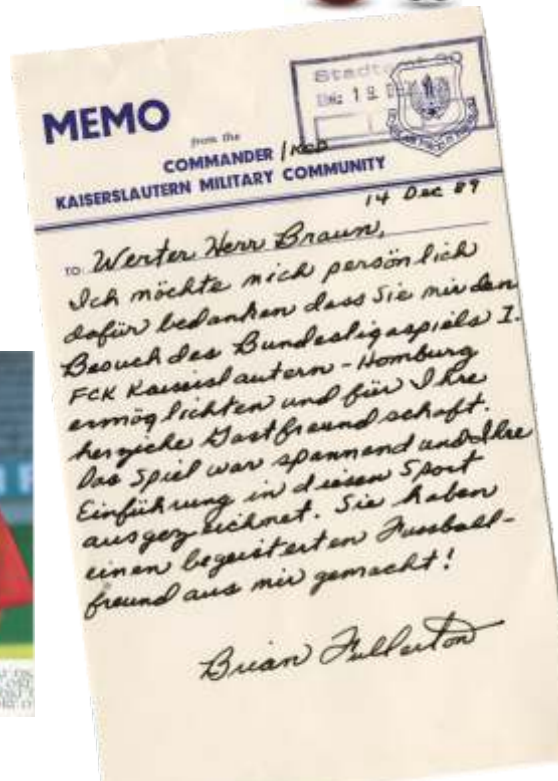 MEMO
from the
COMMANDER / KCD
KAISERSLAUTERN MILITARY COMMUNITY
14 Dec 89
TO: Werter Herr Braun,
Ich möchte mich persönlich
dafür bedanken dass Sie mir den
Besuch des Bundesligaspiels I.
FCK Kaiserslautern - Homburg
ermöglichten und für Ihre
herzliche Gastfreundschaft.
Das Spiel war spannend und Ihre
Einführung in diesen Sport
ausgezeichnet. Sie haben
einen begeisterten Fussball-
freund aus mir gemacht!
Brian Fullerton